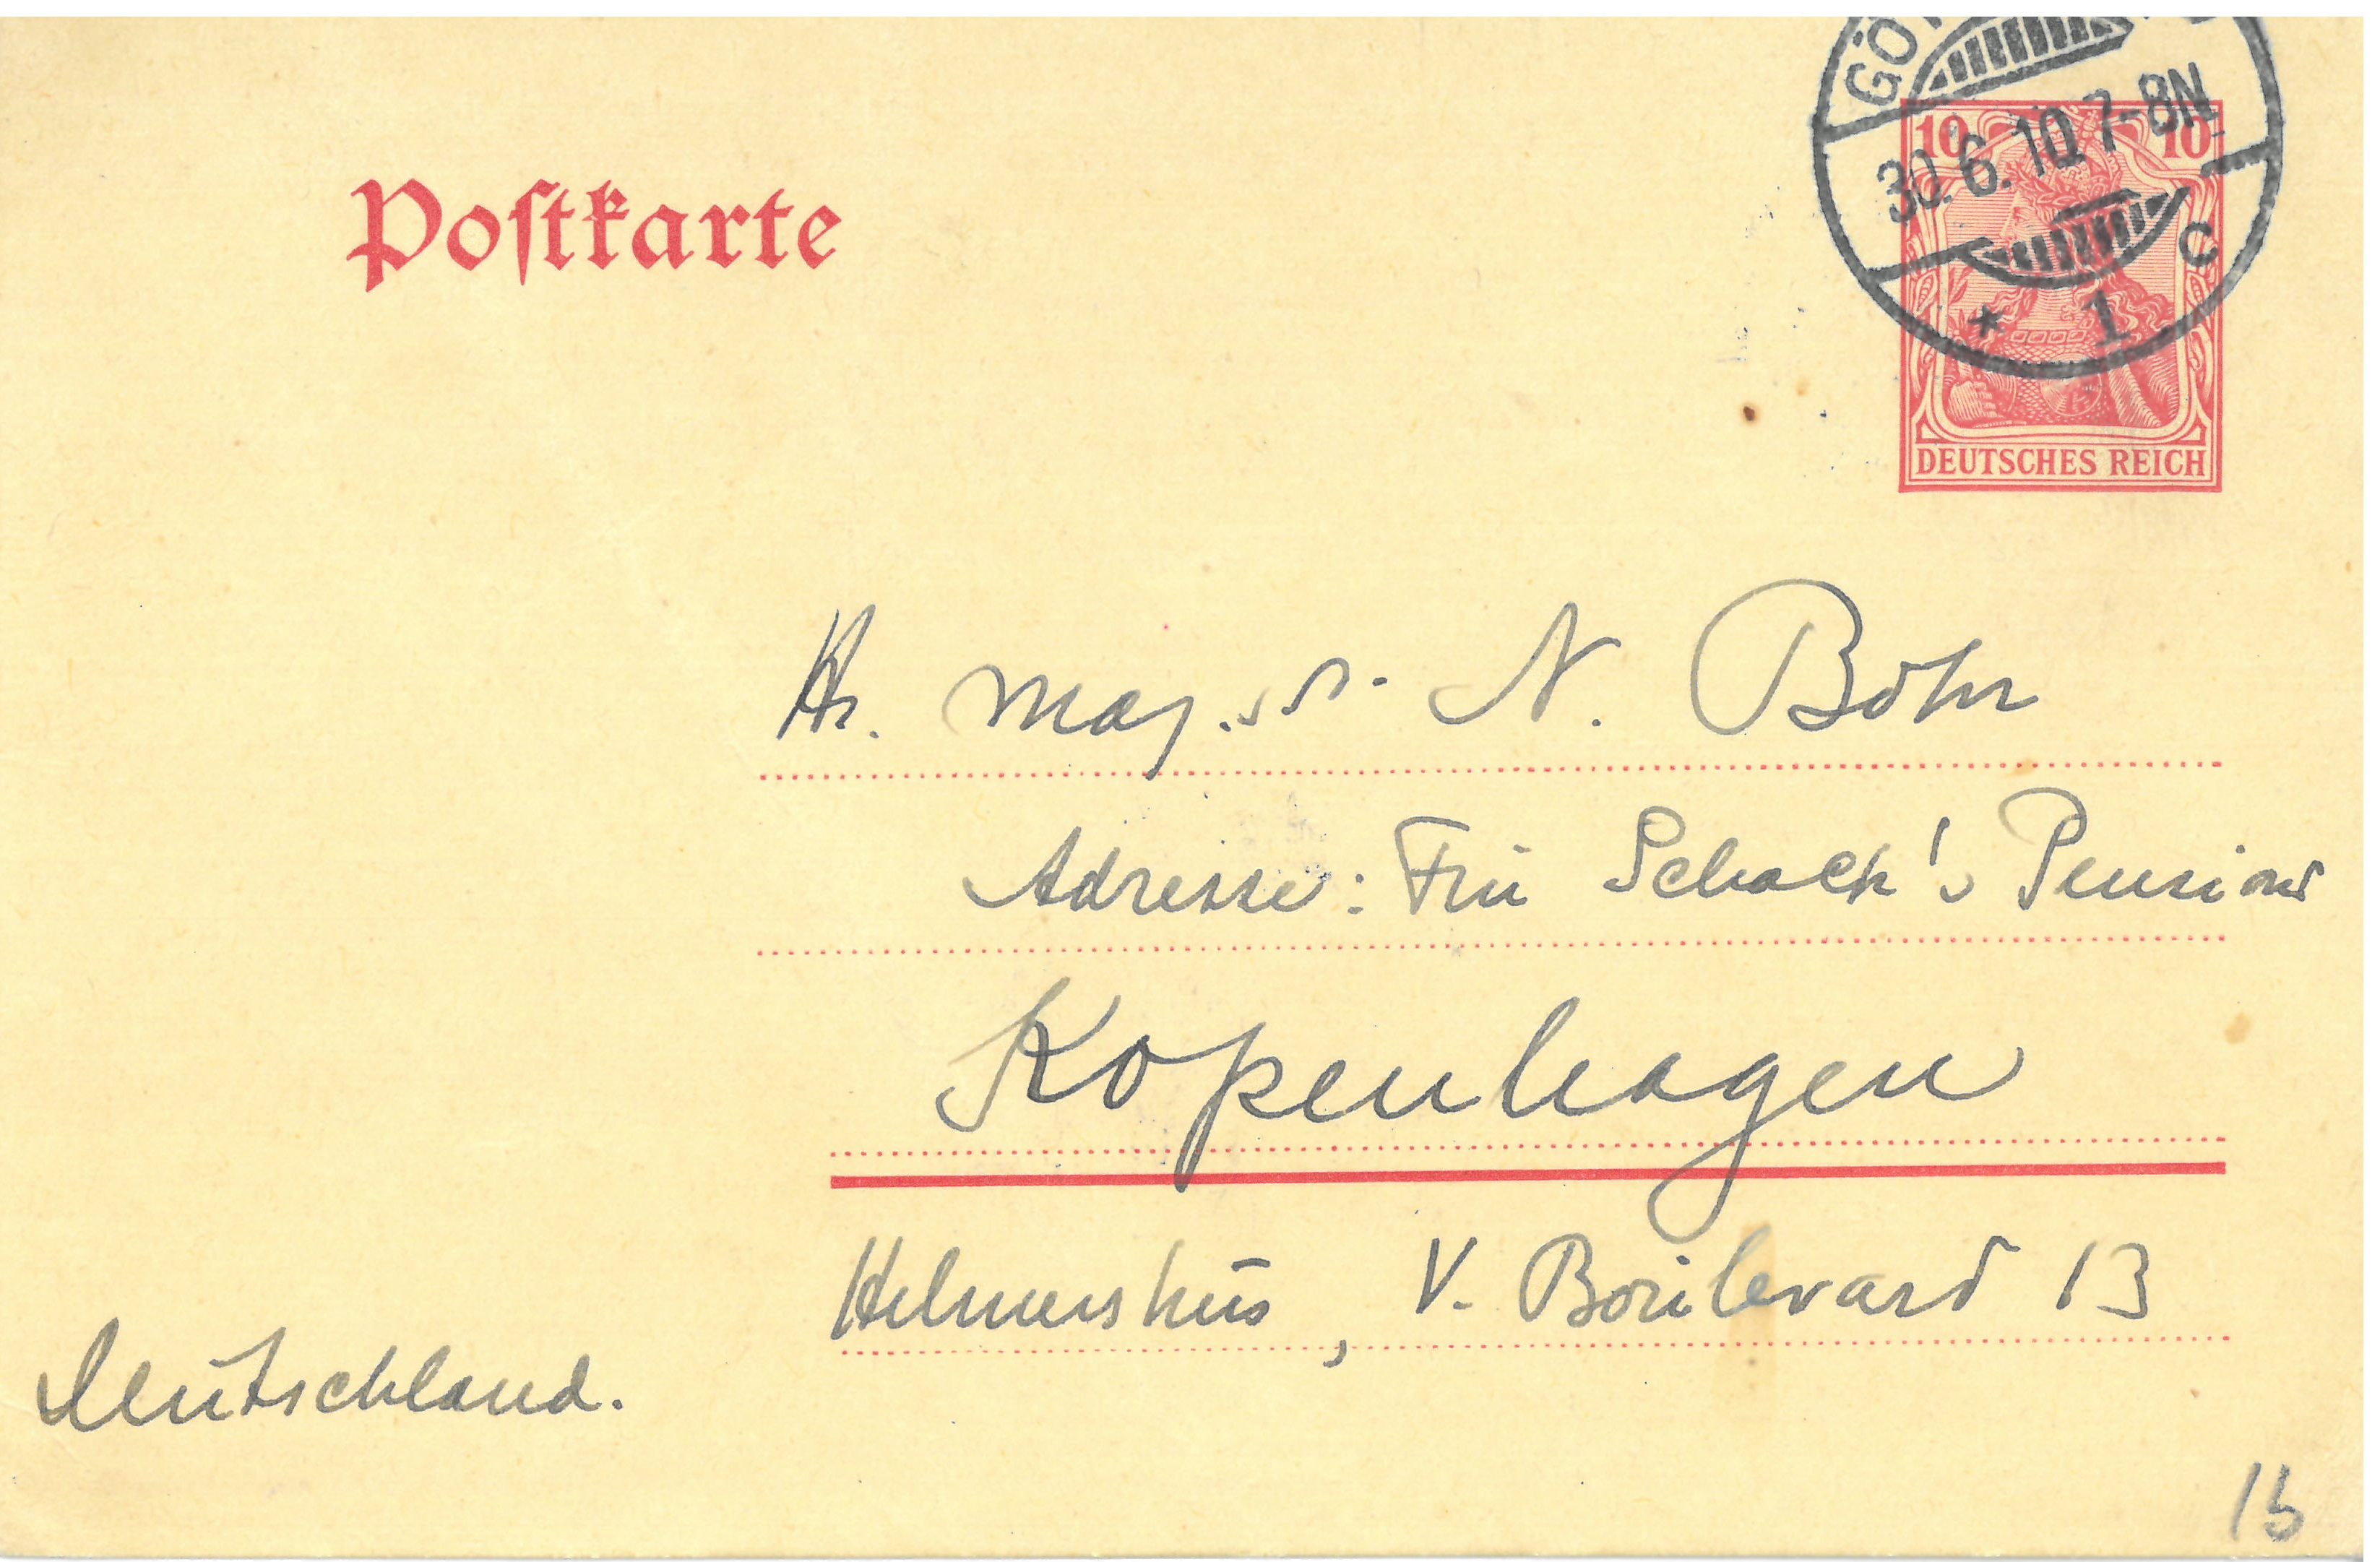 Postkarte
GÖ
30.6.10.7-8N
* 1 c
10 10
DEUTSCHES REICH
Hr. mag. sc. N. Bohr
Adresse: Frū Schack's Pension
Kopenhagen
Helmershūs, V. Boūlevard 13
Deūtschland.
15